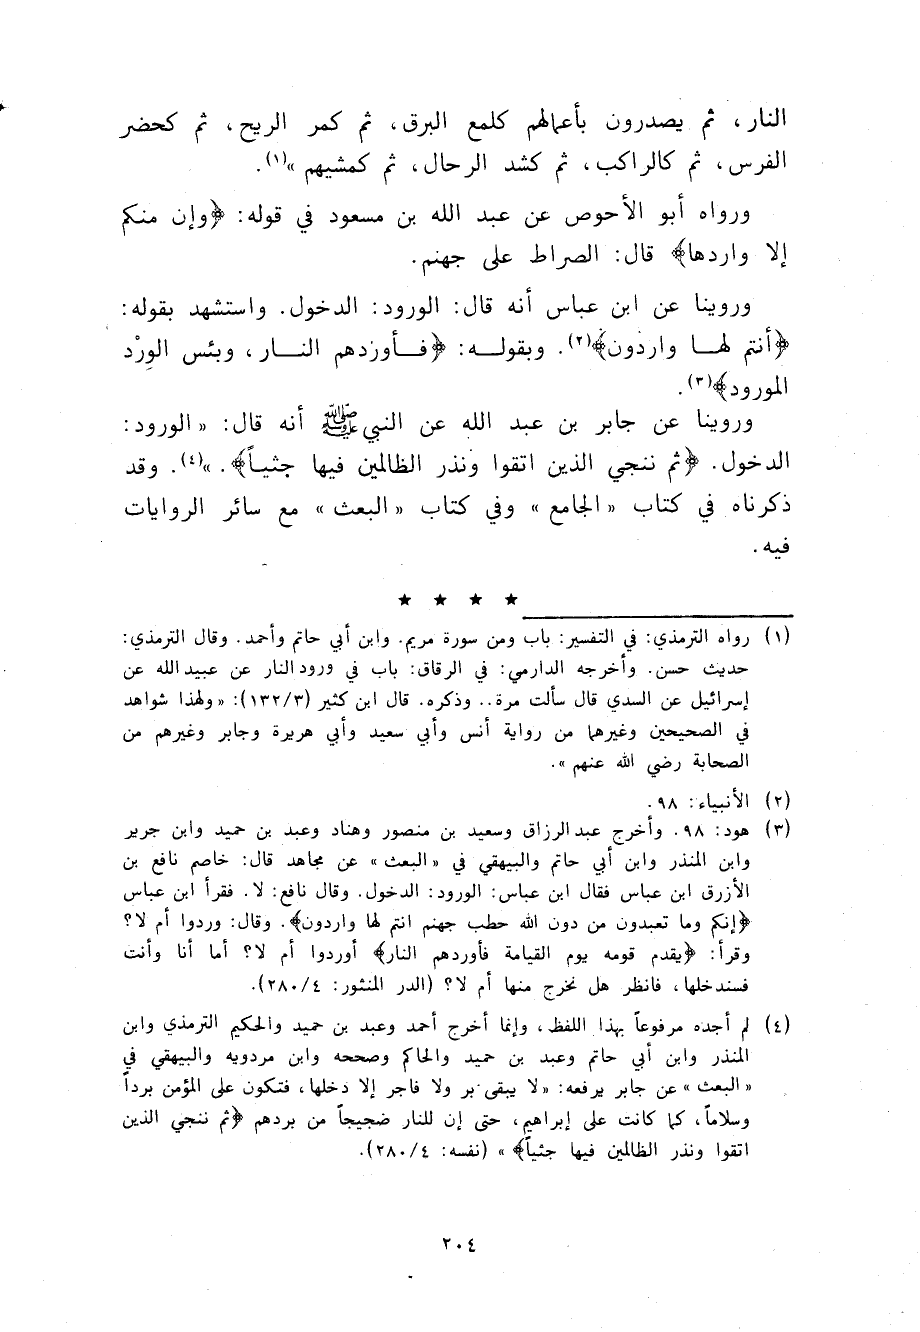 النار، ثم يصدرون بأعمالهم كلمع البرق، ثم كمر الريح، ثم كحضر
الفرس، ثم كالراكب، ثم كشد الرحال، ثم كمشيهم»(١).
ورواه أبو الأحوص عن عبد الله بن مسعود في قوله: ﴿وإن منكم
إلا واردها﴾ قال: الصراط على جهنم.
وروينا عن ابن عباس أنه قال: الورود: الدخول. واستشهد بقوله:
﴿أنتم لهـا واردون﴾(٢). وبقولـه: ﴿فـأوردهم النـار، وبئس الورْد
المورود﴾(٣).
وروينا عن جابر بن عبد الله عن النبي ﷺ أنه قال: «الورود:
الدخول. ﴿ثم ننجي الذين اتقوا ونذر الظالمين فيها جثيـاً﴾.»(٤). وقد
ذكرناه في كتاب «الجامع» وفي كتاب «البعث» مع سائر الروايات
فيه.
★ ★ ★ ★
(١) رواه الترمذي: في التفسير: باب ومن سورة مريم. وابن أبي حاتم وأحمد. وقال الترمذي:
حديث حسن. وأخرجه الدارمي: في الرقاق: باب في ورود النار عن عبيد الله عن
إسرائيل عن السدي قال سألت مرة.. وذكره. قال ابن كثير (١٣٢/٣): «ولهذا شواهد
في الصحيحين وغيرهما من رواية أنس وأبي سعيد وأبي هريرة وجابر وغيرهم من
الصحابة رضي الله عنهم».
(٢) الأنبياء: ٩٨.
(٣) هود: ٩٨. وأخرج عبد الرزاق وسعيد بن منصور وهناد وعبد بن حميد وابن جرير
وابن المنذر وابن أبي حاتم والبيهقي في «البعث» عن مجاهد قال: خاصم نافع بن
الأزرق ابن عباس فقال ابن عباس: الورود: الدخول. وقال نافع: لا. فقرأ ابن عباس
﴿إنكم وما تعبدون من دون الله حطب جهنم انتم لها واردون﴾. وقال: وردوا أم لا؟
وقرأ: ﴿يقدم قومه يوم القيامة فأوردهم النار﴾ أوردوا أم لا؟ أما أنا وأنت
فسندخلها، فانظر هل نخرج منها أم لا؟ (الدر المنثور: ٢٨٠/٤).
(٤) لم أجده مرفوعاً بهذا اللفظ، وإنما أخرج أحمد وعبد بن حميد والحكيم الترمذي وابن
المنذر وابن أبي حاتم وعبد بن حميد والحاكم وصححه وابن مردويه والبيهقي في
«البعث» عن جابر يرفعه: «لا يبقى بر ولا فاجر إلا دخلها، فتكون على المؤمن برداً
وسلاماً، كما كانت على إبراهيم، حتى إن للنار ضجيجاً من بردهم ﴿ثم ننجي الذين
اتقوا ونذر الظالمين فيها جثياً﴾» (نفسه: ٢٨٠/٤).
٢٠٤